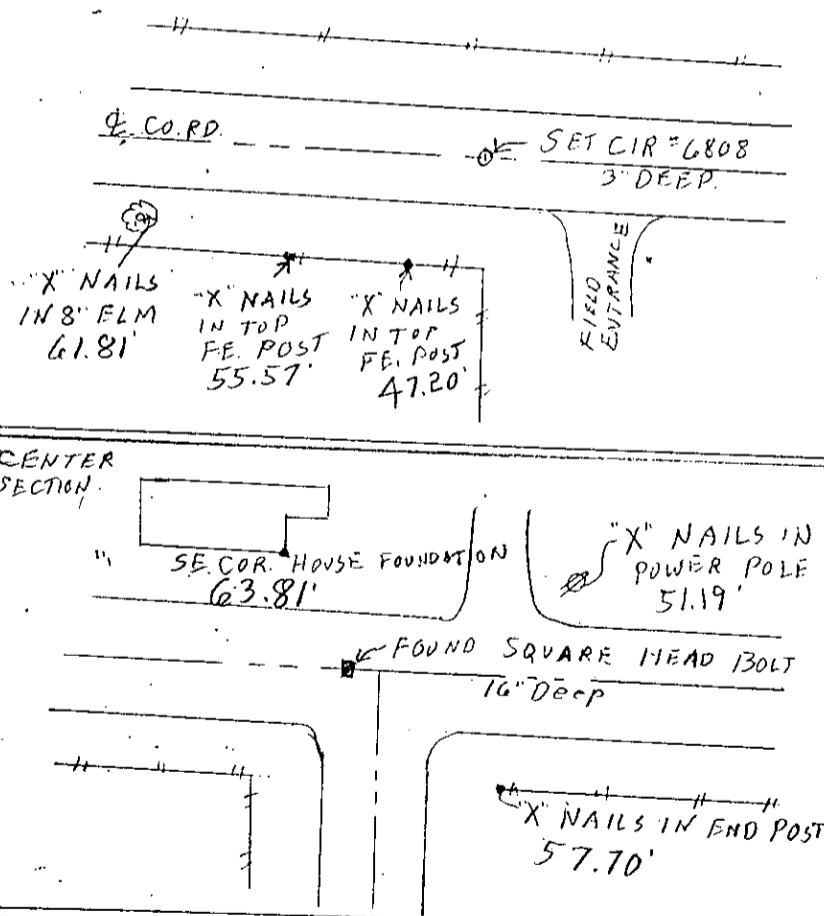 ℄ CO. RD.
SET CIR #6808
3" DEEP.
"X" NAILS
IN 8" ELM
61.81'
"X" NAILS
IN TOP
FE. POST
55.57'
"X" NAILS
IN TOP
FE. POST
47.20'
FIELD
ENTRANCE
CENTER
SECTION.
SE. COR. HOUSE FOUNDATION
63.81'
"X" NAILS IN
POWER POLE
51.19'
FOUND SQUARE HEAD BOLT
16" Deep
"X" NAILS IN END POST
57.70'